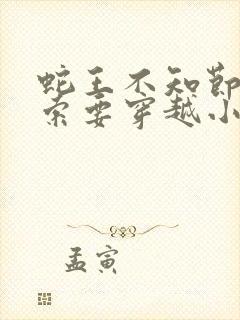 蛇王不知节
索要穿越小
孟寅